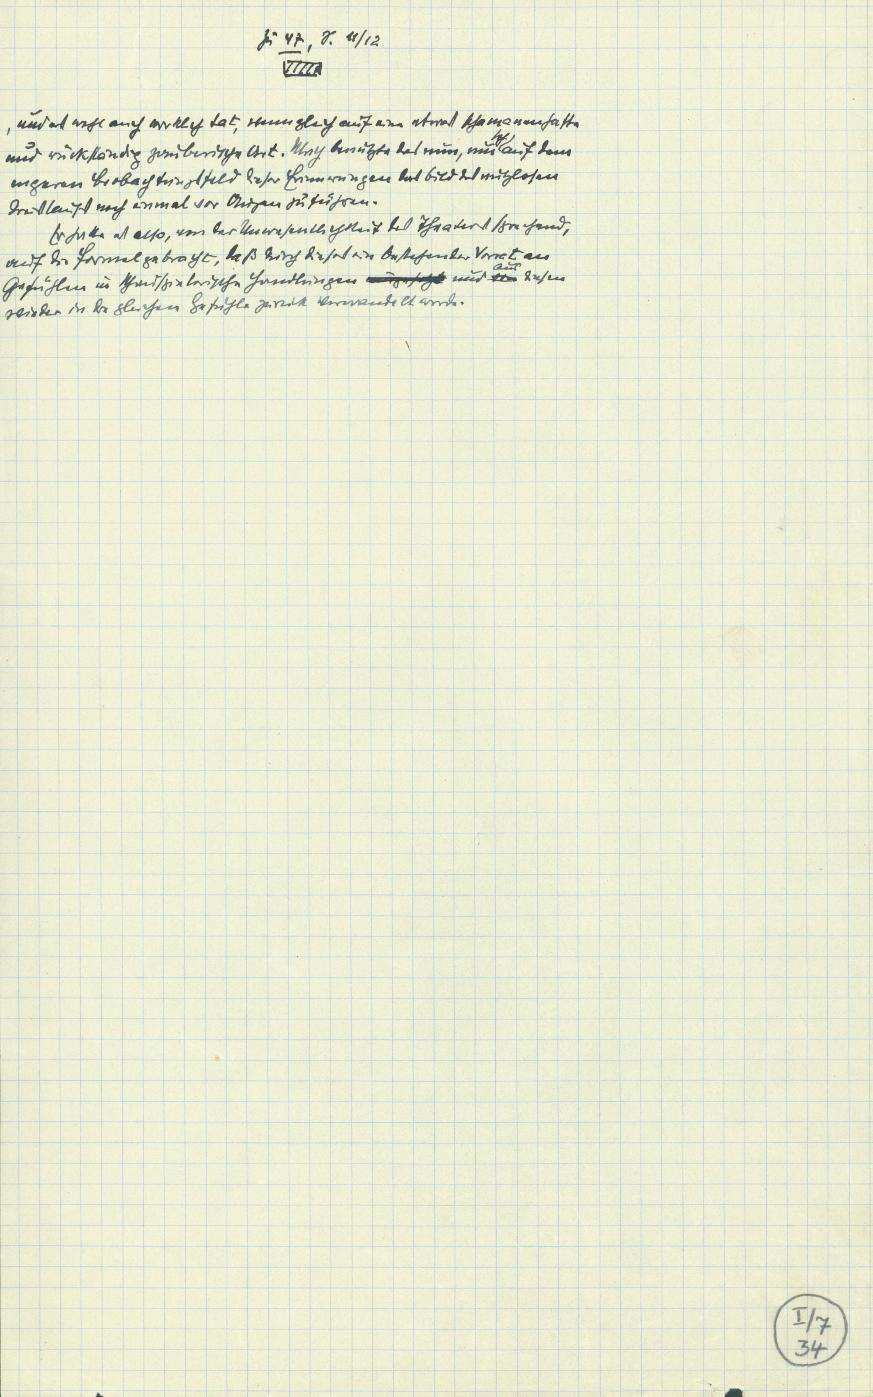 Zu 47, S. 11/12
, und es wohl auch wirklich tat, wenngleich auf eine etwas schamanenhafte
und rückständig zauberische Art. Ulrich benützte das nun, um sich auf dem
engeren Beobachtungsfeld dieser Erinnerungen das Bild des nutzlosen
Kreislaufs noch einmal vor Augen zu führen.
Er hatte es also, von der Unwesentlichkeit des Theaters sprechend,
auf die Formel gebracht, daß durch dieses ein bestehender Vorrat an
Gefühlen in schauspielerische Handlungen und aus diesen
wieder in die gleichen Gefühle zurück verwandelt werde.
I/7
34